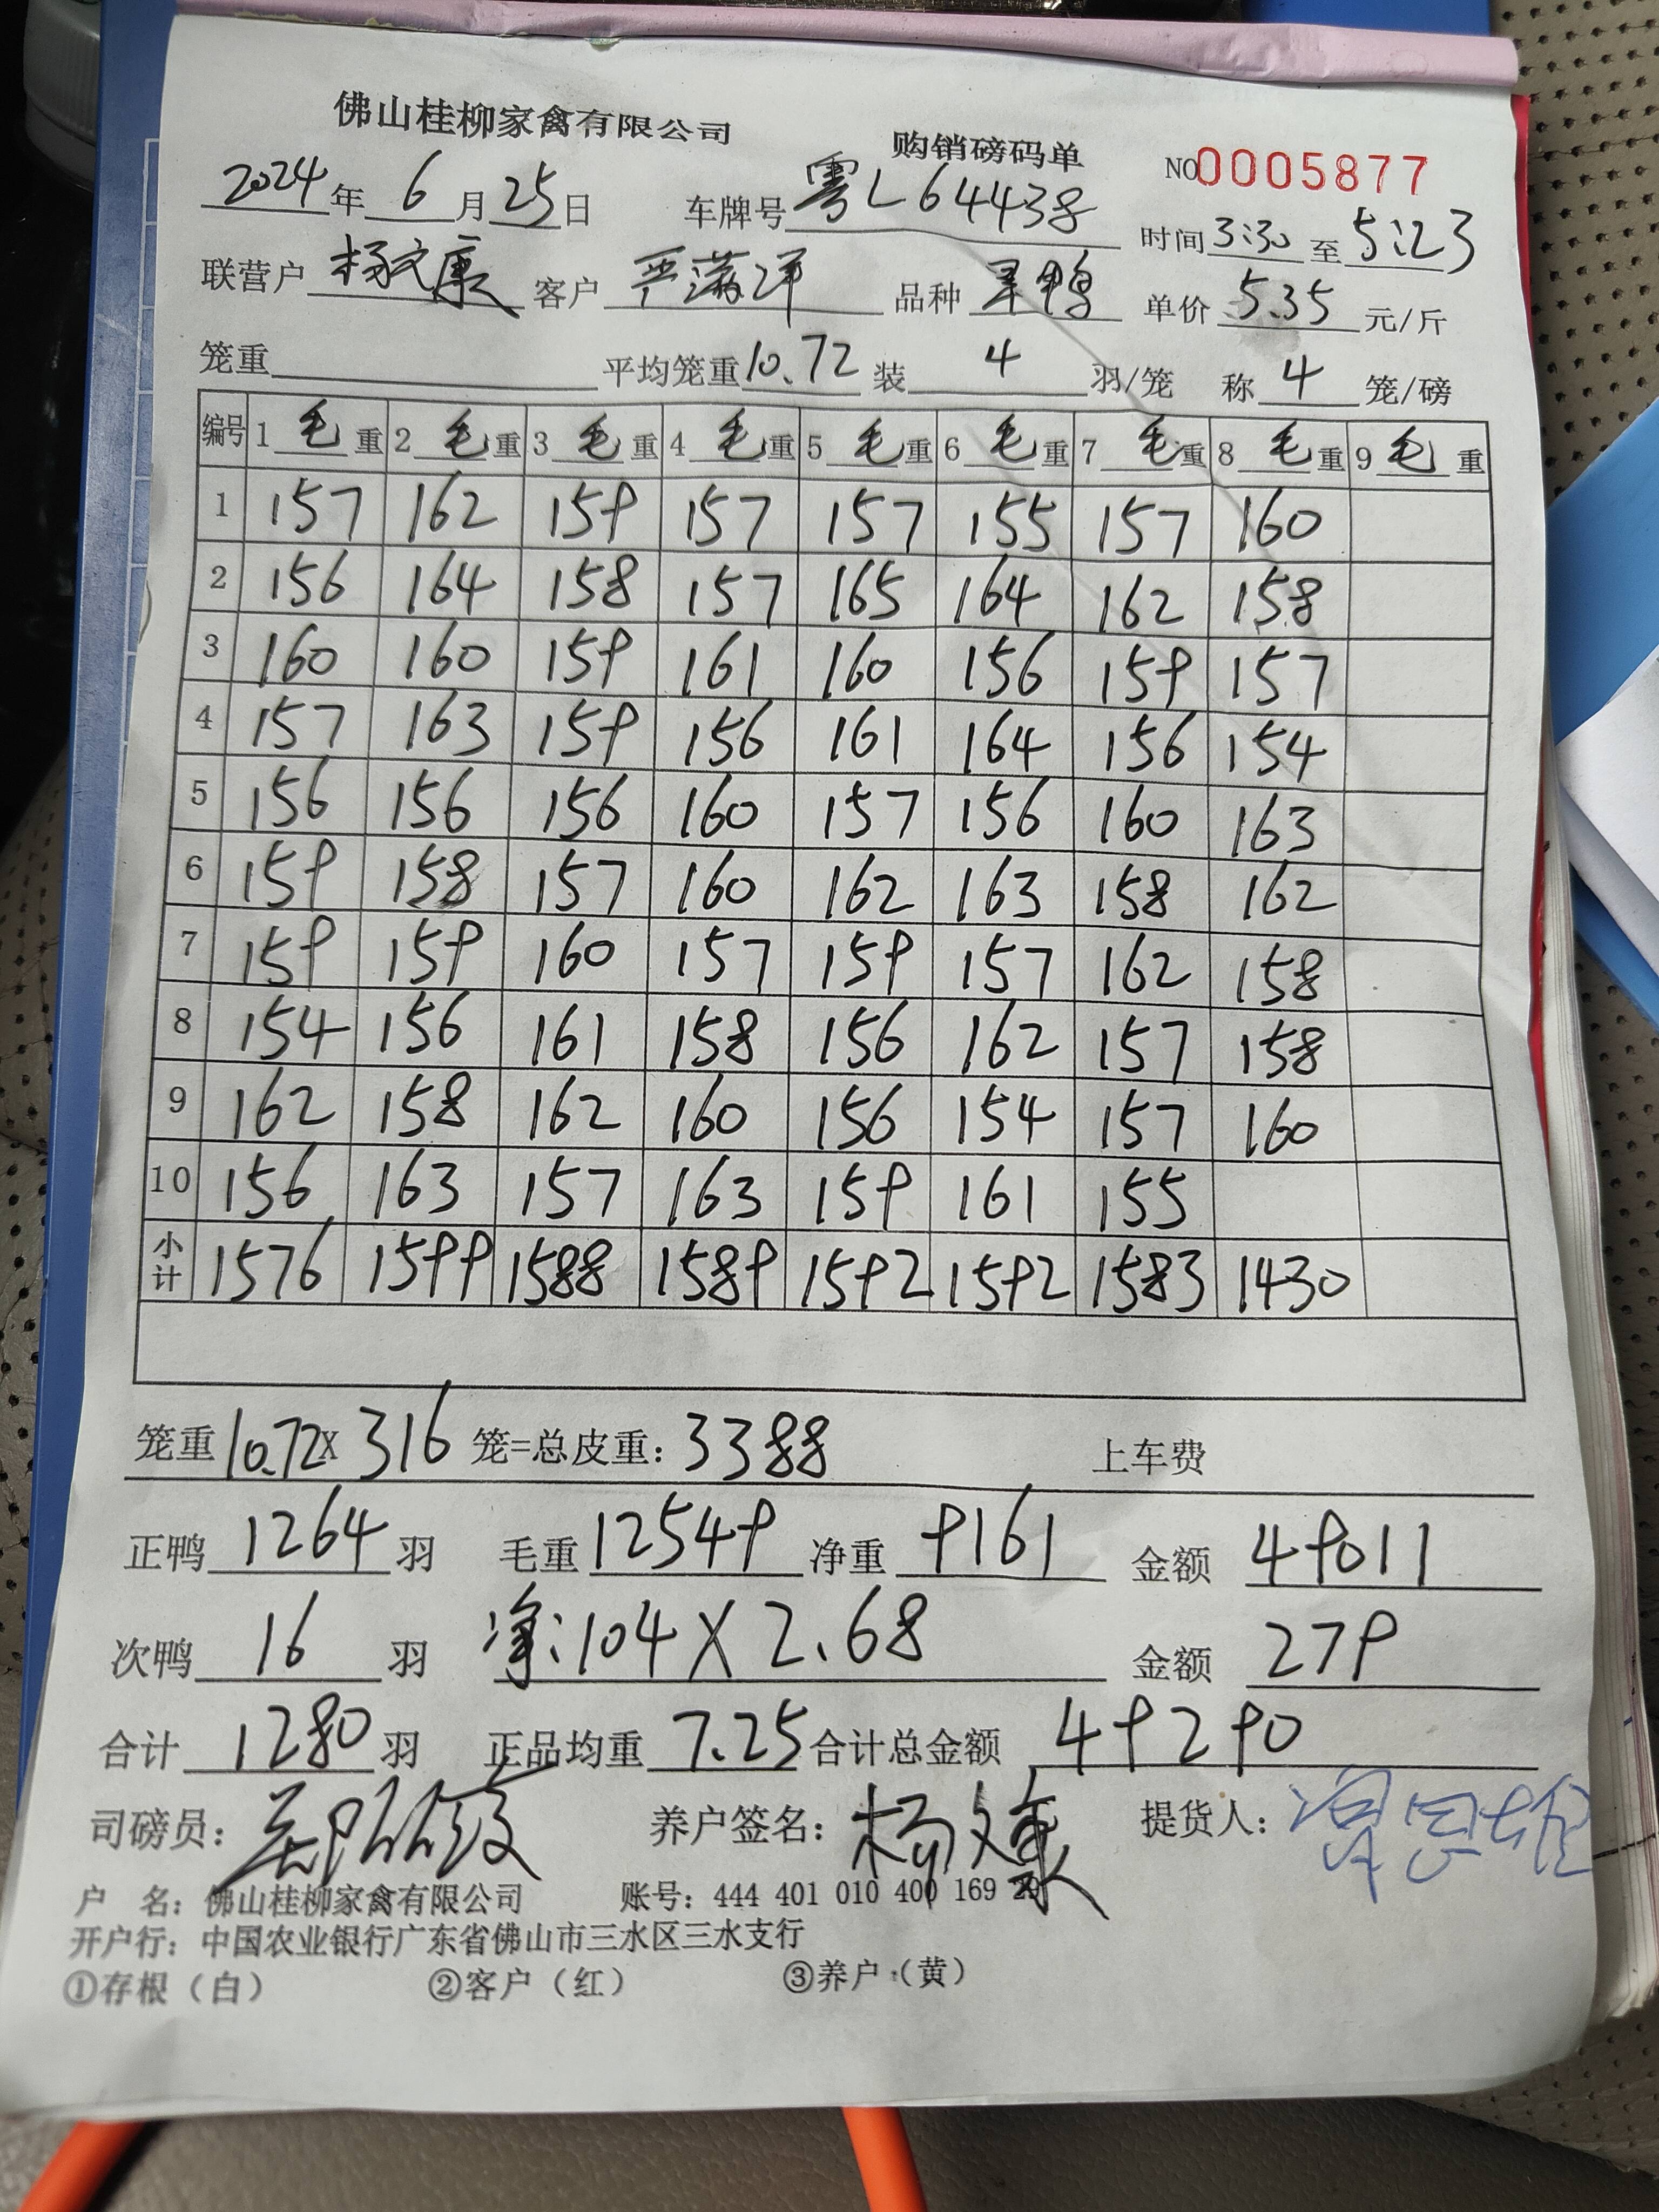 佛山桂柳家禽有限公司 购销磅码单 NO0005877
2024年6月25日 车牌号粤L64438 时间3:30至5:23
联营户杨文康 客户严满洋 品种 鸭 单价5.35元/斤
笼重 平均笼重10.72装4羽/笼 称4笼/磅
编号 1毛重 2毛重 3毛重 4毛重 5毛重 6毛重 7毛重 8毛重 9毛重
1 157 162 159 157 157 155 157 160
2 156 164 158 157 165 164 162 158
3 160 160 159 161 160 156 159 157
4 157 163 159 156 161 164 156 154
5 156 156 156 160 157 156 160 163
6 159 158 157 160 162 163 158 162
7 159 159 160 157 159 157 162 158
8 154 156 161 158 156 162 157 158
9 162 158 162 160 156 154 157 160
10 156 163 157 163 159 161 155
小计 1576 1599 1588 1589 1592 1592 1583 1430
笼重10.72X316笼=总皮重:3388 上车费
正鸭1264羽 毛重12549净重9161 金额49011
次鸭16羽 净:104X2.68 金额279
合计1280羽 正品均重7.25合计总金额49290
司磅员: 养户签名:杨文康 提货人:
户 名:佛山桂柳家禽有限公司 账号:444 401 010 400 169 29
开户行:中国农业银行广东省佛山市三水区三水支行
①存根(白) ②客户(红) ③养户(黄)